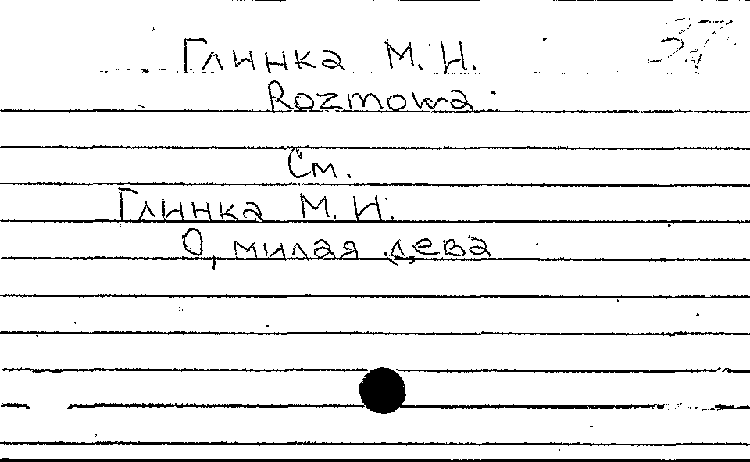 37
Глинка М. И.
Rozmowa
См.
Глинка М. И.
О, милая дева